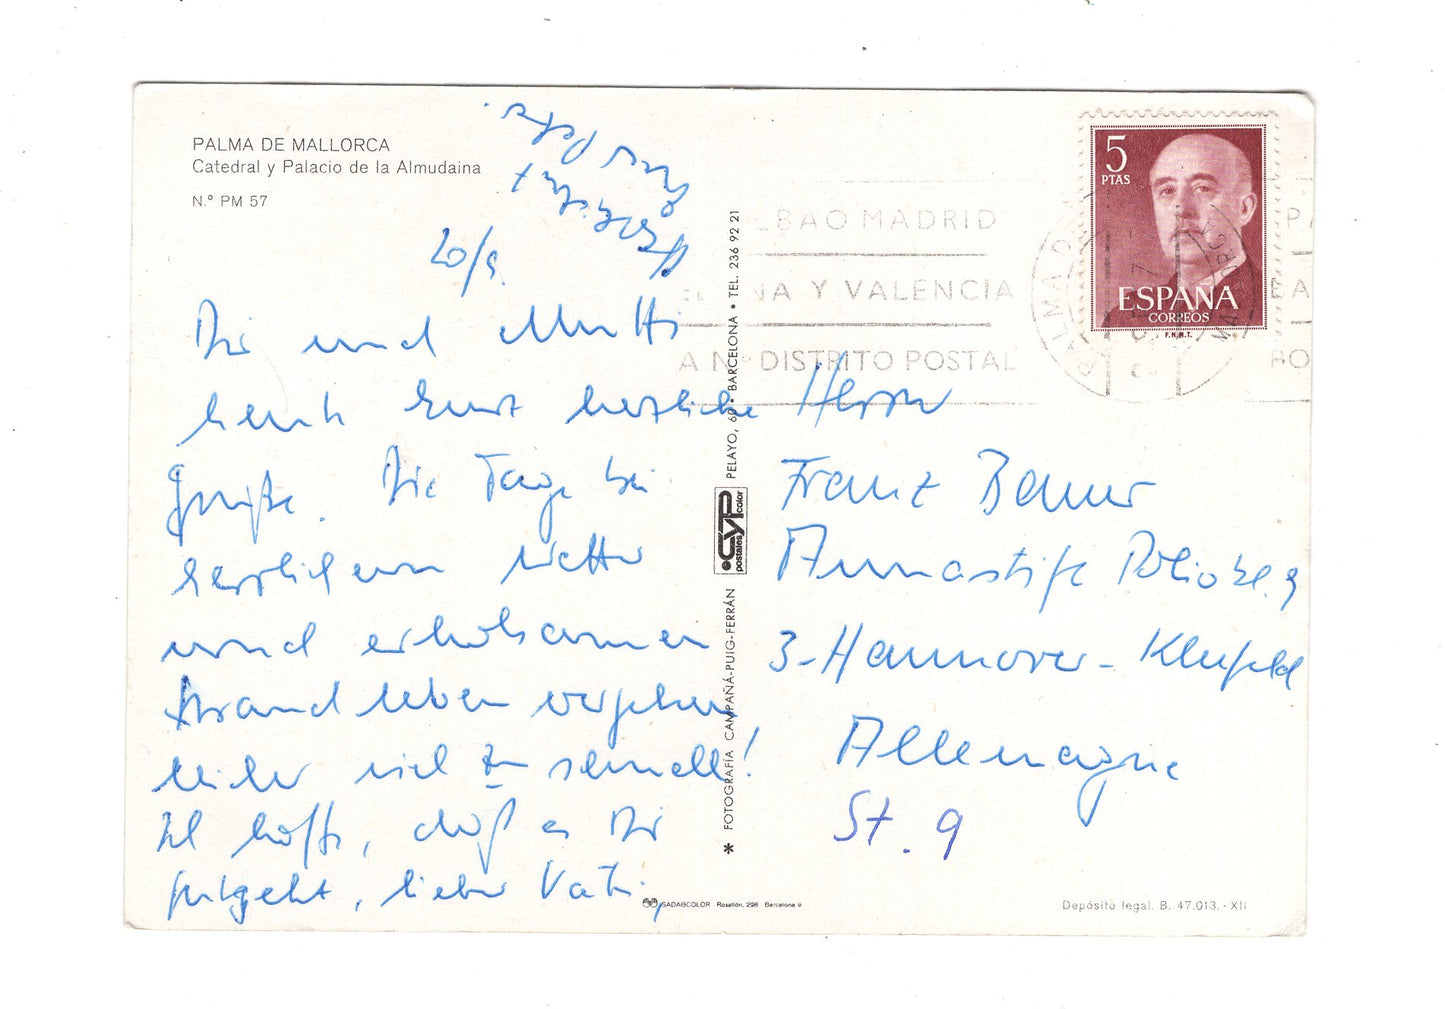 PALMA DE MALLORCA
Catedral y Palacio de la Almudaina
N.º PM 57
20/9
Dir und Mutti
heute Euch herzliche
Grüße. Die Tage bei
herrlichem Wetter
und erholsamen
Strandleben vergehen
leider viel zu schnell!
Ich hoffe, daß es Dir
gutgeht, lieber Vati,
Herzlichst
Herrn
Franz Bauer
Annastift Station 9
3-Hannover-Kleefeld
Allemagne
St. 9
5
PTAS
ESPAÑA
CORREOS
F.N.M.T.
BAO MADRID
NA Y VALENCIA
A Nº DISTRITO POSTAL
PALMA D
MALLORCA
* FOTOGRAFÍA CAMPAÑÁ-PUIG-FERRÁN
CYP
postales
color
PELAYO, 60 • BARCELONA • TEL. 236 92 21
SADAGCOLOR Rosellón, 298 Barcelona 9
Depósito legal. B. 47.013.-XII